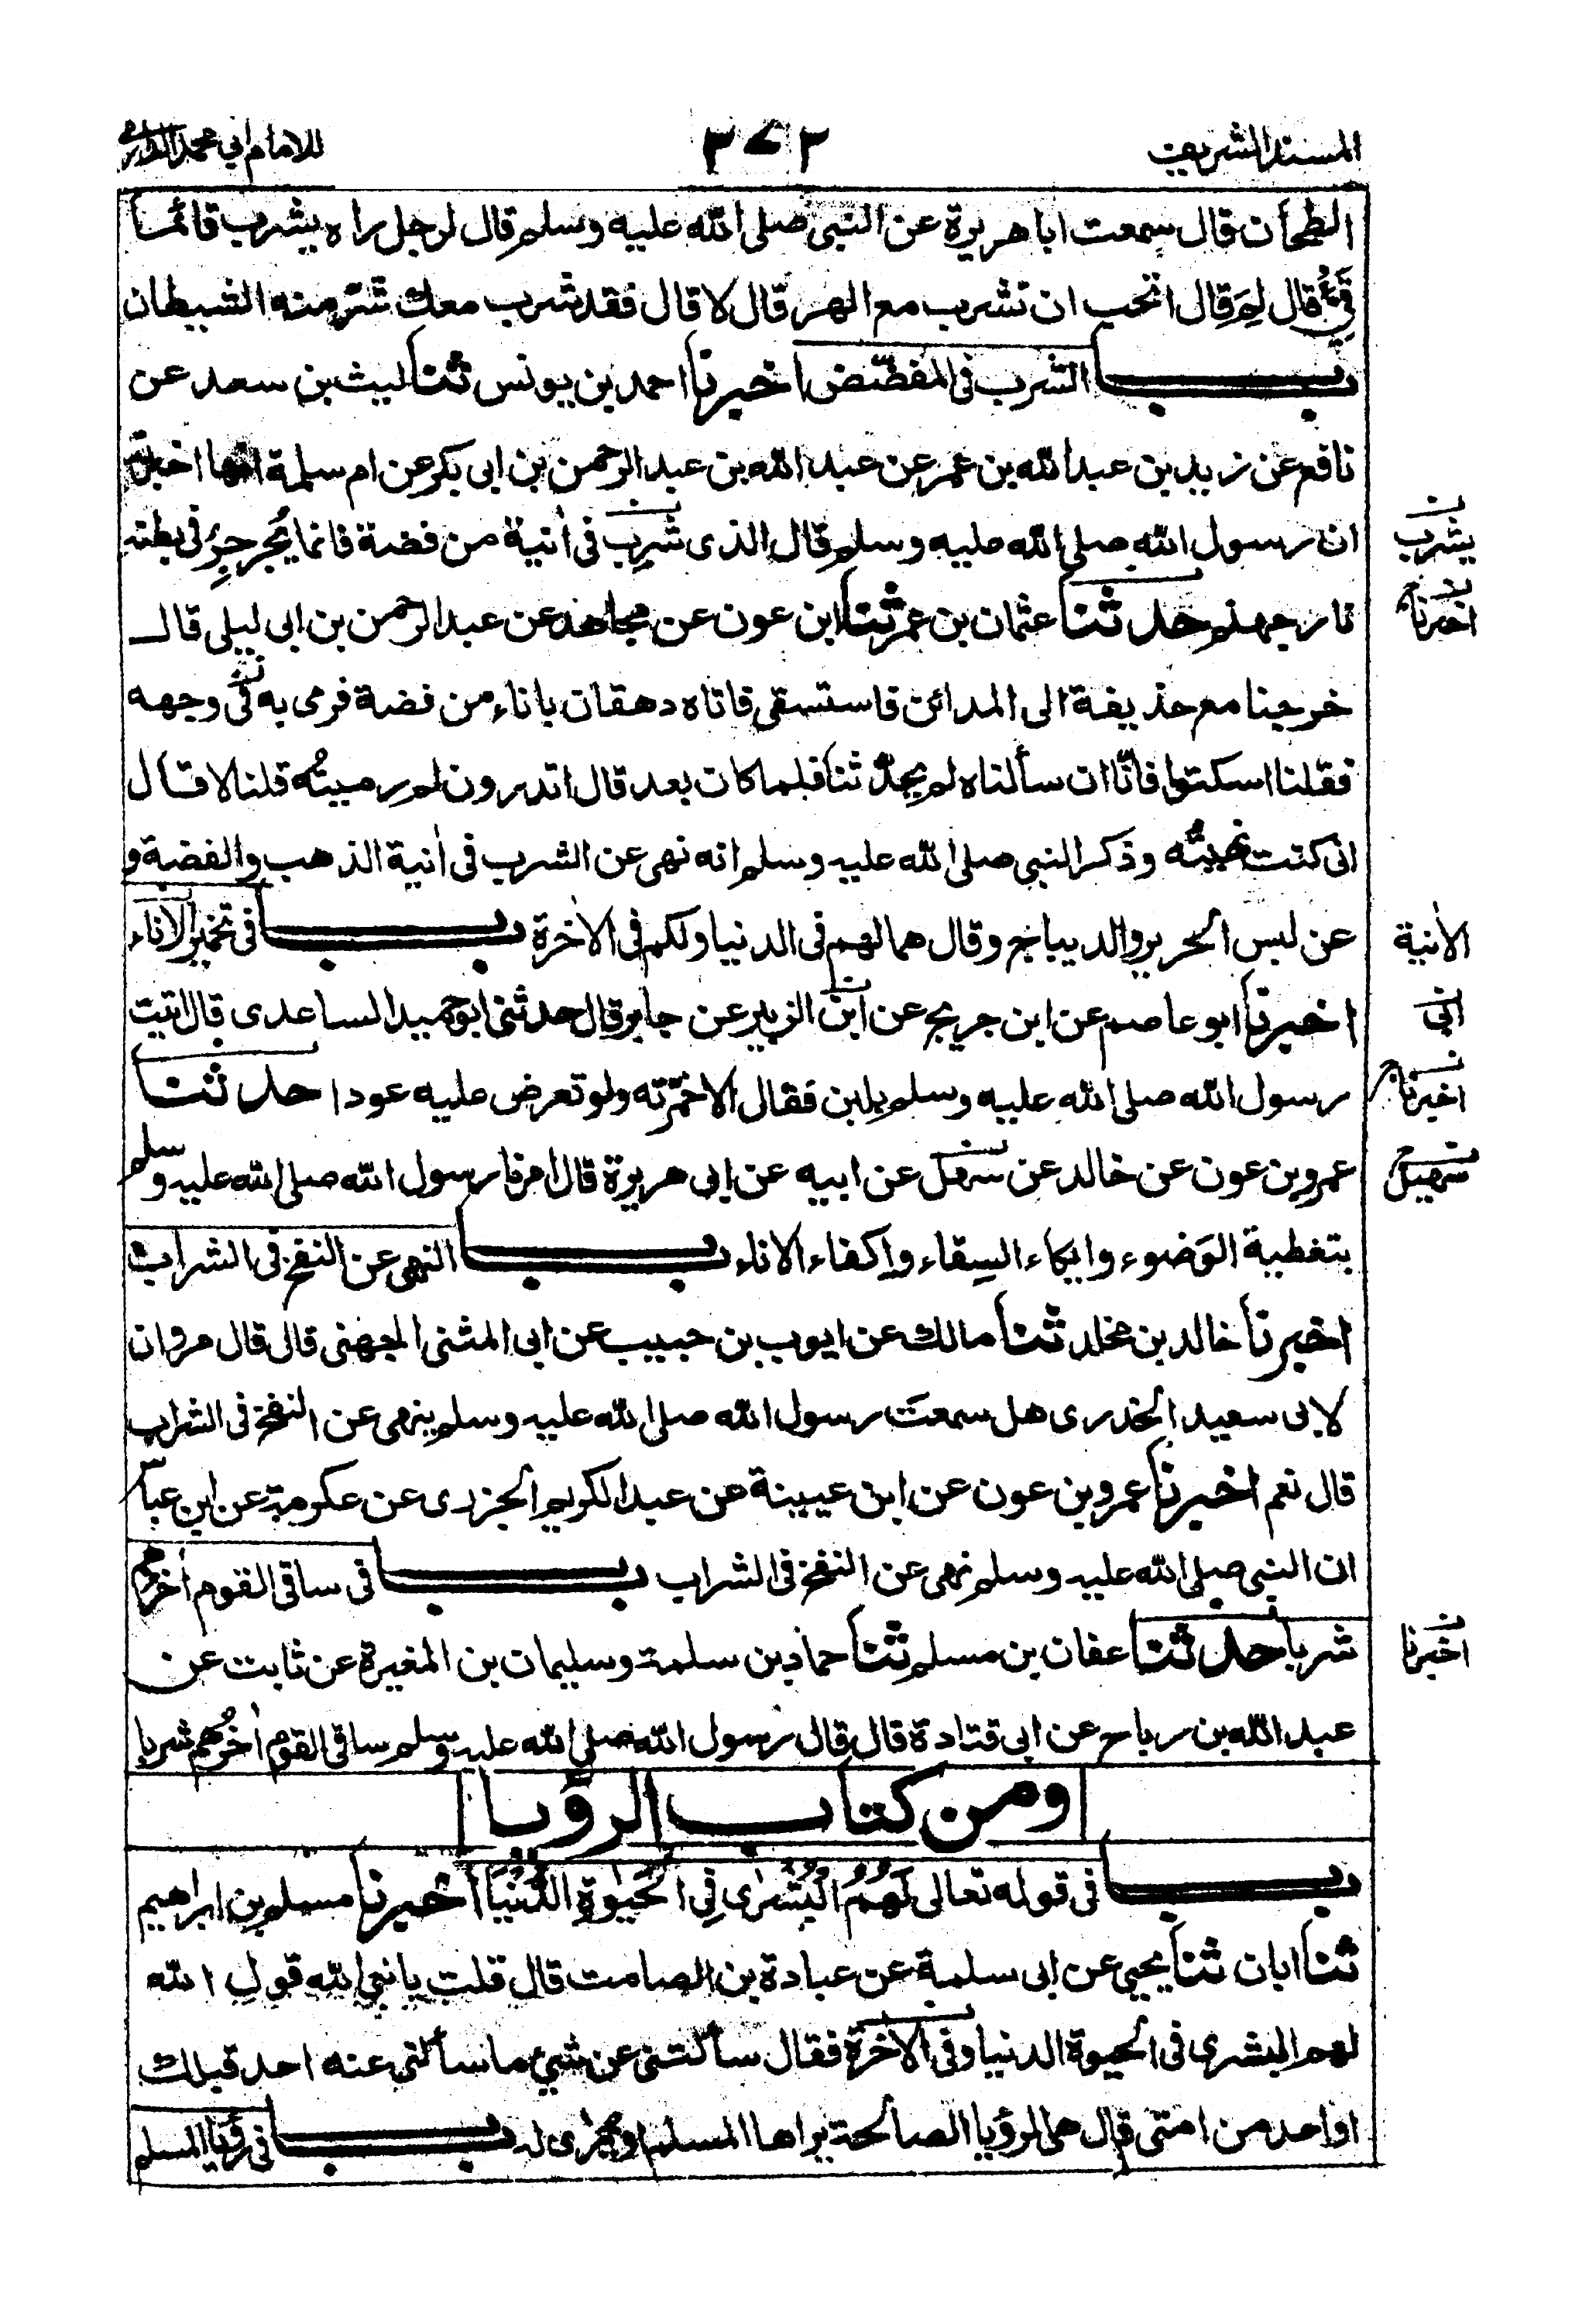 المسند الشريف
٢٧٣
للامام ابي محمد الدارمي
الطحان قال سمعت ابا هريرة عن النبي صلى الله عليه وسلم قال لرجل راه يشرب قائما
قئ قال لم قال اتحب ان تشرب مع الهر قال لا قال فقد شرب معك شر منه الشيطان
باب الشرب فى المفضض اخبرنا احمد بن يونس ثنا ليث بن سعد عن
نافع عن زيد بن عبد الله بن عمر عن عبد الله بن عبد الرحمن بن ابى بكر عن ام سلمة انها اخبرته
ان رسول الله صلى الله عليه وسلم قال الذى شرب فى اٰنية من فضة فانما يجرجر فى بطنه
يشرب
نار جهنم حدثنا عثمان بن عمر ثنا ابن عون عن مجاهد عن عبد الرحمن بن ابى ليلى قال
اخبرنا
خرجنا مع حذيفة الى المدائن فاستسقى فاتاه دهقان باناء من فضة فرمى به فى وجهه
فقلنا اسكتوا فانّا ان سألناه لم يحدّثنا فلما كان بعد قال اتدرون لم رميتُه قلنا لا قال
انى كنت نهيتُه وذكر النبى صلى الله عليه وسلم انه نهى عن الشرب فى اٰنية الذهب والفضة و
عن لبس الحرير والديباج وقال هما لهم فى الدنيا ولكم فى الاٰخرة باب فى تخمير الاناء
الاٰنية
اخبرنا ابو عاصم عن ابن جريج عن ابن الزبير عن جابر قال حدثنى ابو حميد الساعدى قال اتيت
ابى
رسول الله صلى الله عليه وسلم بلبن فقال الا خمّرته ولو تعرض عليه عودا حدثنا
اخبرنا
عمرو بن عون عن خالد عن سهل عن ابيه عن ابى هريرة قال امرنا رسول الله صلى الله عليه وسلم
سهيل
بتغطية الوَضوء وايكاء السِقاء واكفاء الاناء باب النهى عن النفخ فى الشراب
اخبرنا خالد بن مخلد ثنا مالك عن ايوب بن حبيب عن ابى المثنى الجهنى قال قال مروان
لابى سعيد الخدرى هل سمعتَ رسول الله صلى الله عليه وسلم ينهى عن النفخ فى الشراب
قال نعم اخبرنا عمرو بن عون عن ابن عيينة عن عبد الكريم الجزرى عن عكرمة عن ابن عباس
ان النبى صلى الله عليه وسلم نهى عن النفخ فى الشراب باب فى ساقى القوم اٰخرهم
شربا حدثنا عفان بن مسلم ثنا حماد بن سلمة وسليمان بن المغيرة عن ثابت عن
اخبرنا
عبد الله بن رباح عن ابى قتادة قال قال رسول الله صلى الله عليه وسلم ساقى القوم اٰخرُهم شربا
ومن كتاب الرؤيا
باب فى قوله تعالى لَهُمُ الْبُشْرٰى فِى الْحَيٰوةِ الدُّنْيَا اخبرنا مسلم بن ابراهيم
ثنا ابان ثنا يحيى عن ابى سلمة عن عبادة بن الصامت قال قلت يا نبى الله قول الله
لهم البشرى فى الحيوة الدنيا وفى الاٰخرة فقال سألتنى عن شئ ما سألنى عنه احد قبلك
او احد من امتى قال هى الرؤيا الصالحة يراها المسلم او تُرٰى له باب فى رؤيا المسلم